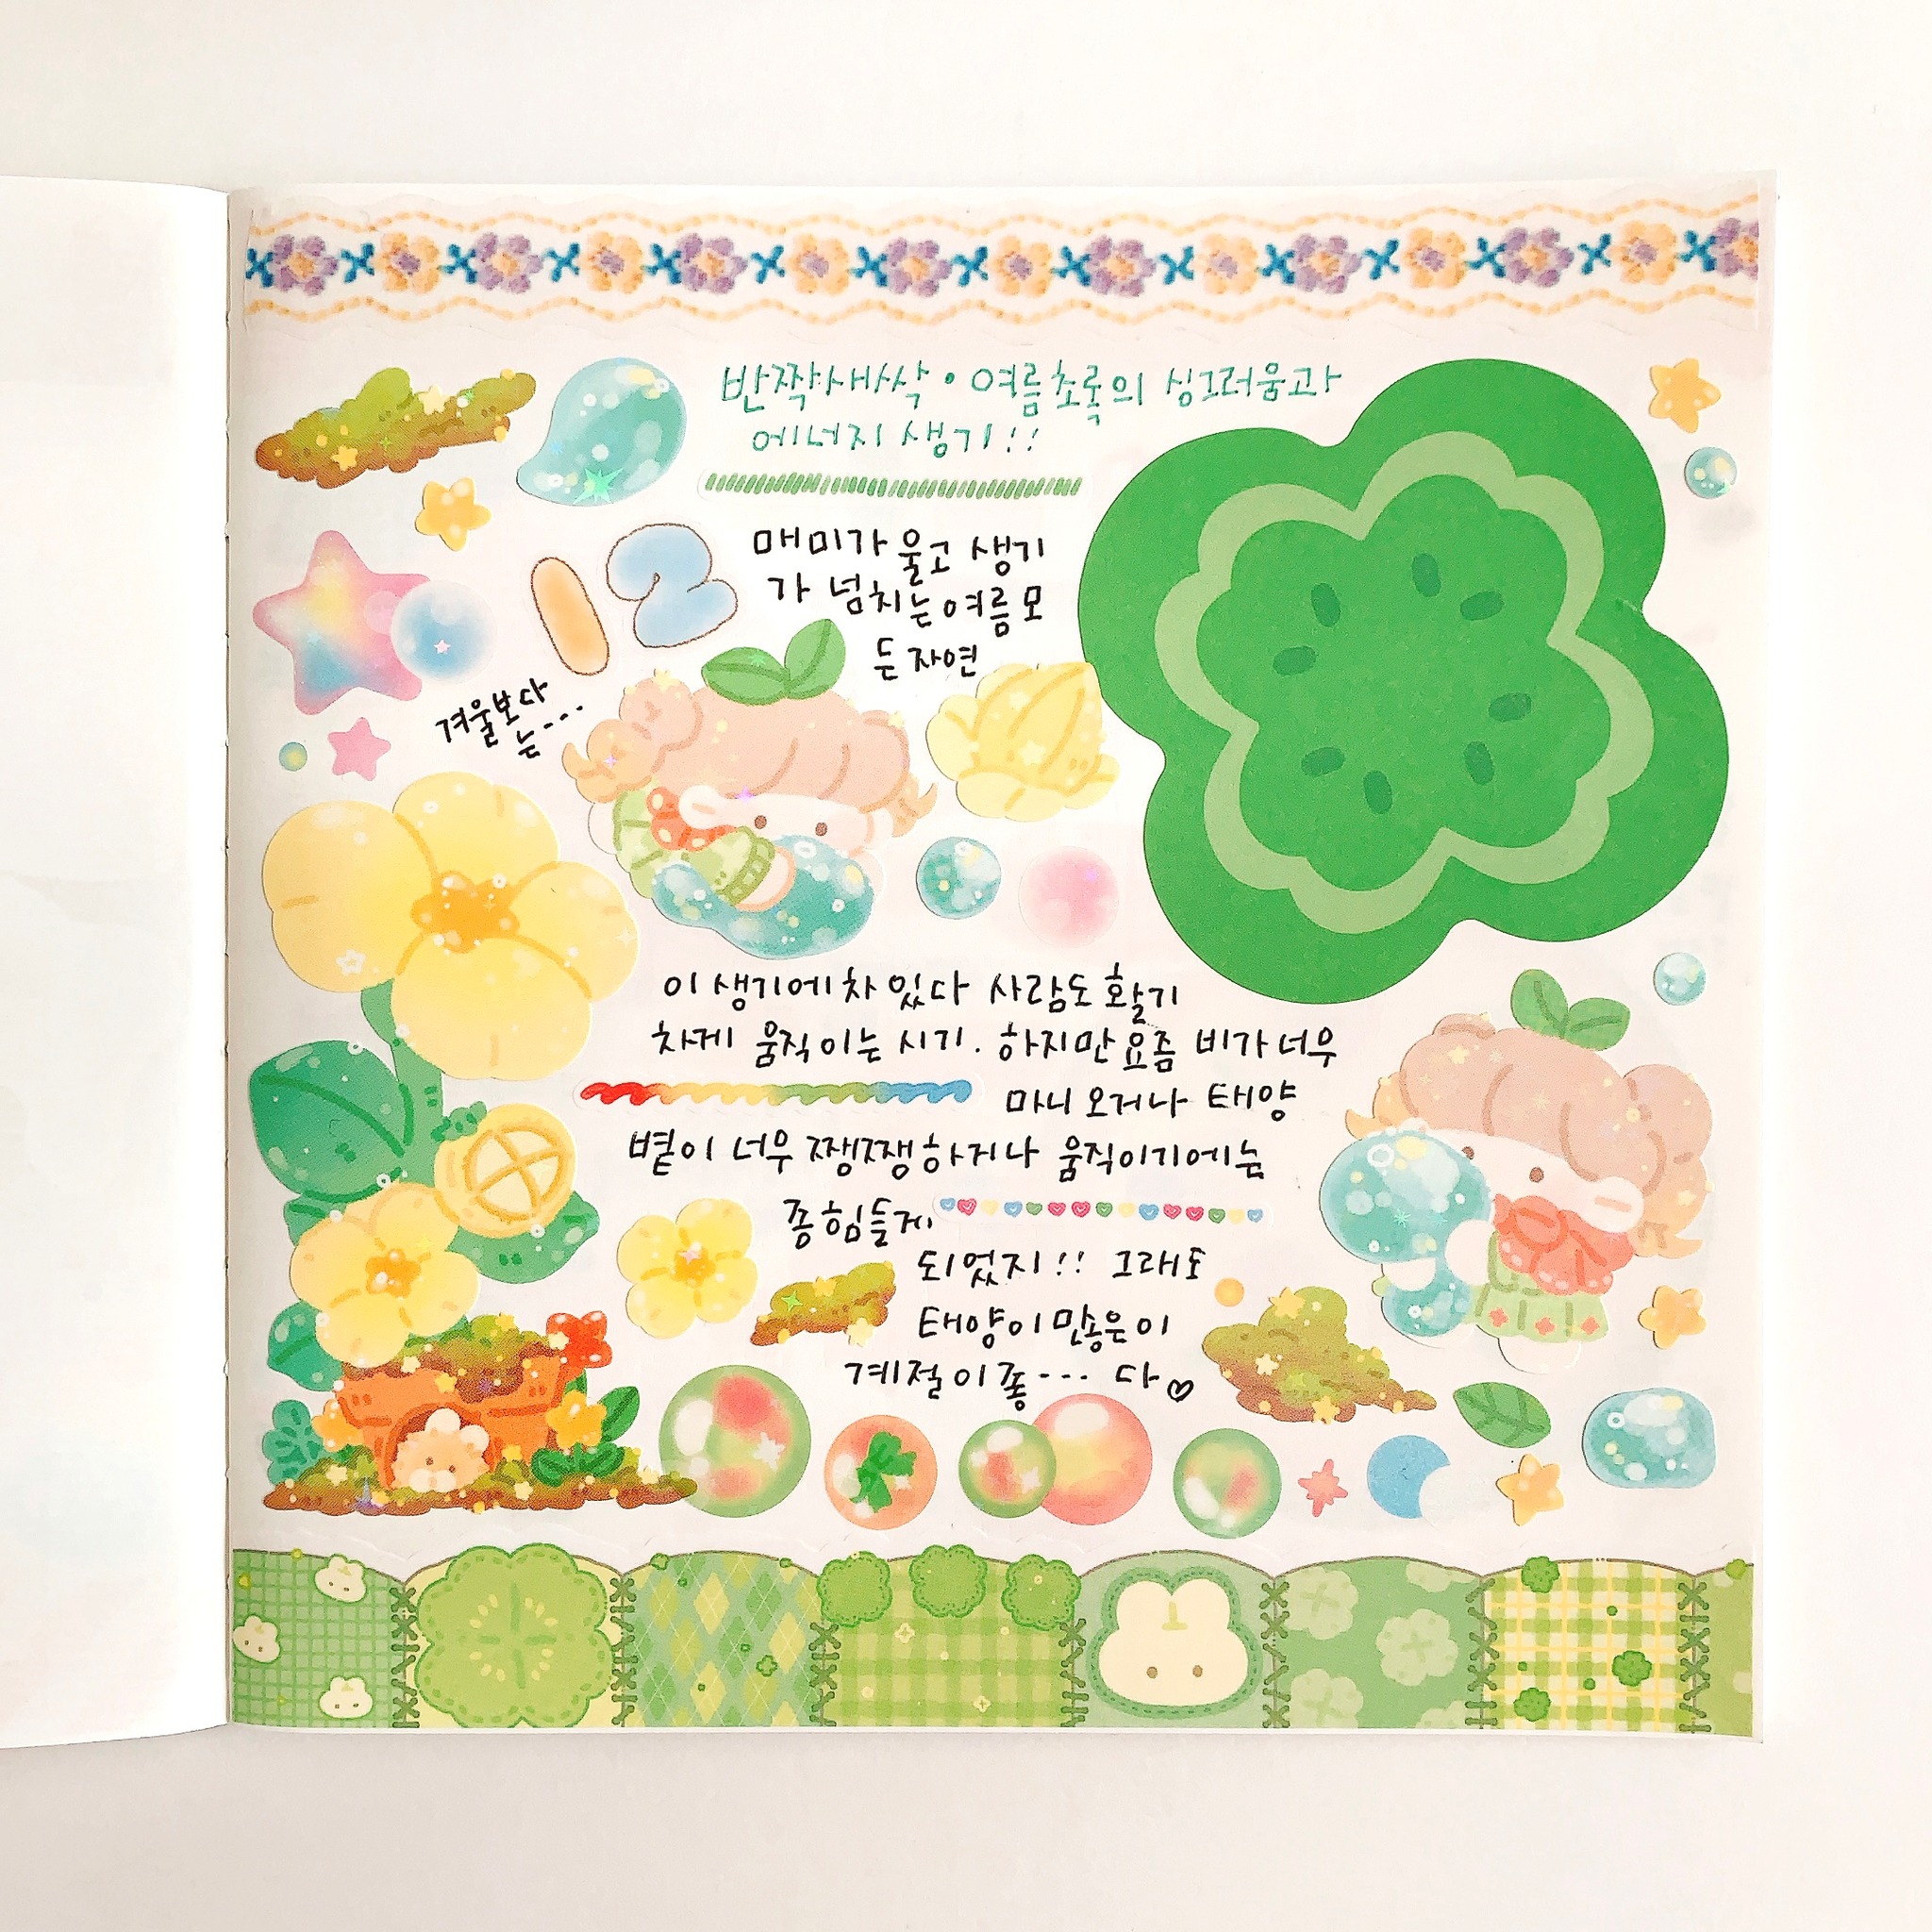 반짝새싹•여름초록의 싱그러움과
에너지 생기!!
12
매미가 울고 생기
가 넘치는 여름 모
든 자연
겨울보다
는---
이 생기에 차 있다 사람도 활기
차게 움직이는 시기. 하지만 요즘 비가 너무
마니 오거나 태양
볕이 너무 쨍쨍하거나 움직이기에는
좀 힘들게
되었지!! 그래도
태양이 많은 이
계절이 좋--- 다♡